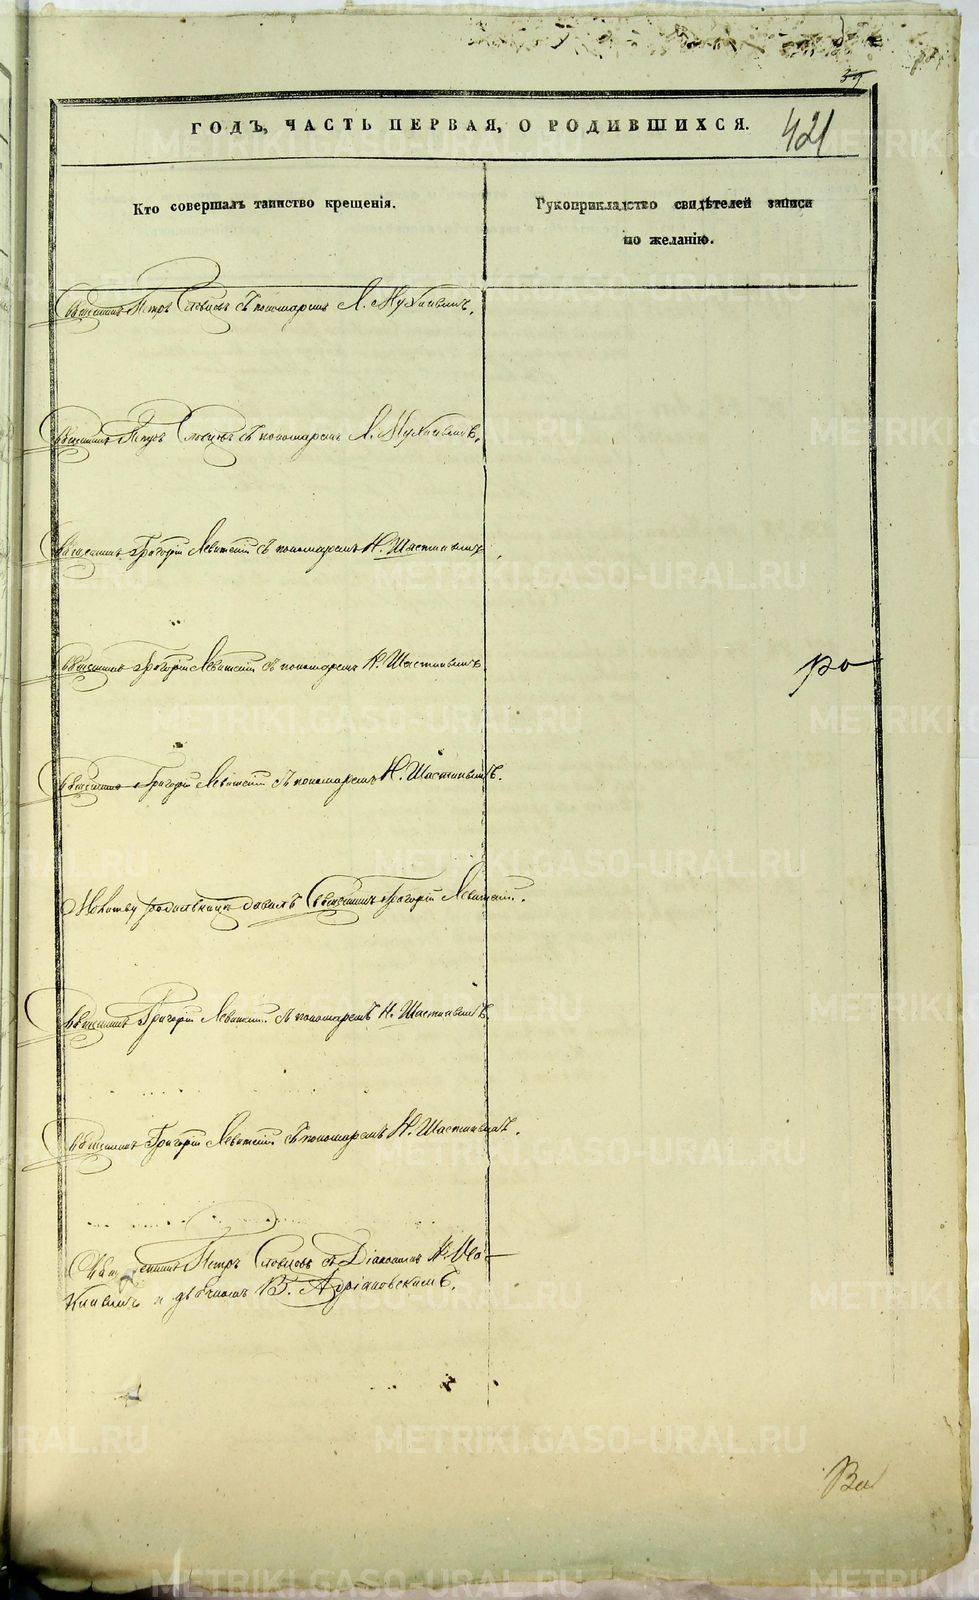 39
ГОДЪ, ЧАСТЬ ПЕРВАЯ, О РОДИВШИХСЯ.
421
Кто совершалъ таинство крещенія.
Рукоприкладство свидѣтелей записи
по желанію.
Священникъ Петръ Словцовъ съ пономаремъ
Священникъ Петръ Словцовъ съ пономаремъ
Священникъ Григорій Левитскій съ пономаремъ Н. Шастинымъ
Священникъ Григорій Левитскій съ пономаремъ Н. Шастинымъ
ро
Священникъ Григорій Левитскій съ пономаремъ Н. Шастинымъ.
Молитву родильницѣ давалъ Священникъ Григорій Левитскій.
Священникъ Григорій Левитскій съ пономаремъ Н. Шастинымъ.
Священникъ Григорій Левитскій съ пономаремъ Н. Шастинымъ.
Священникъ Петръ Словцовъ съ Діакономъ
и дьячкомъ В. Адріановскимъ.
METRIKI.GASO-URAL.RU